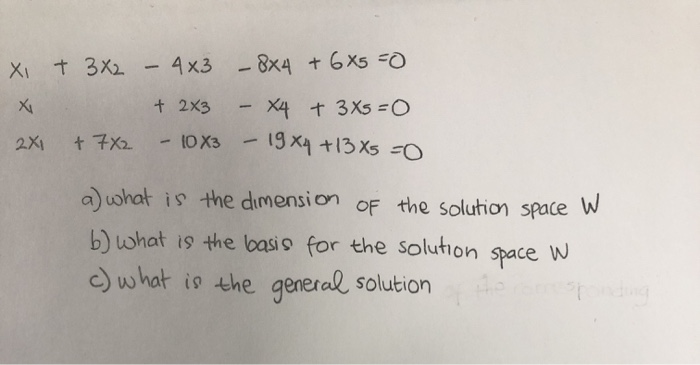 x1 + 3x2 - 4x3 - 8x4 + 6x5 =0
x1 + 2x3 - x4 + 3x5 =0
2x1 + 7x2 - 10x3 - 19x4 +13x5 =0
a) what is the dimension OF the solution space W
b) what is the basis for the solution space W
c) what is the general solution